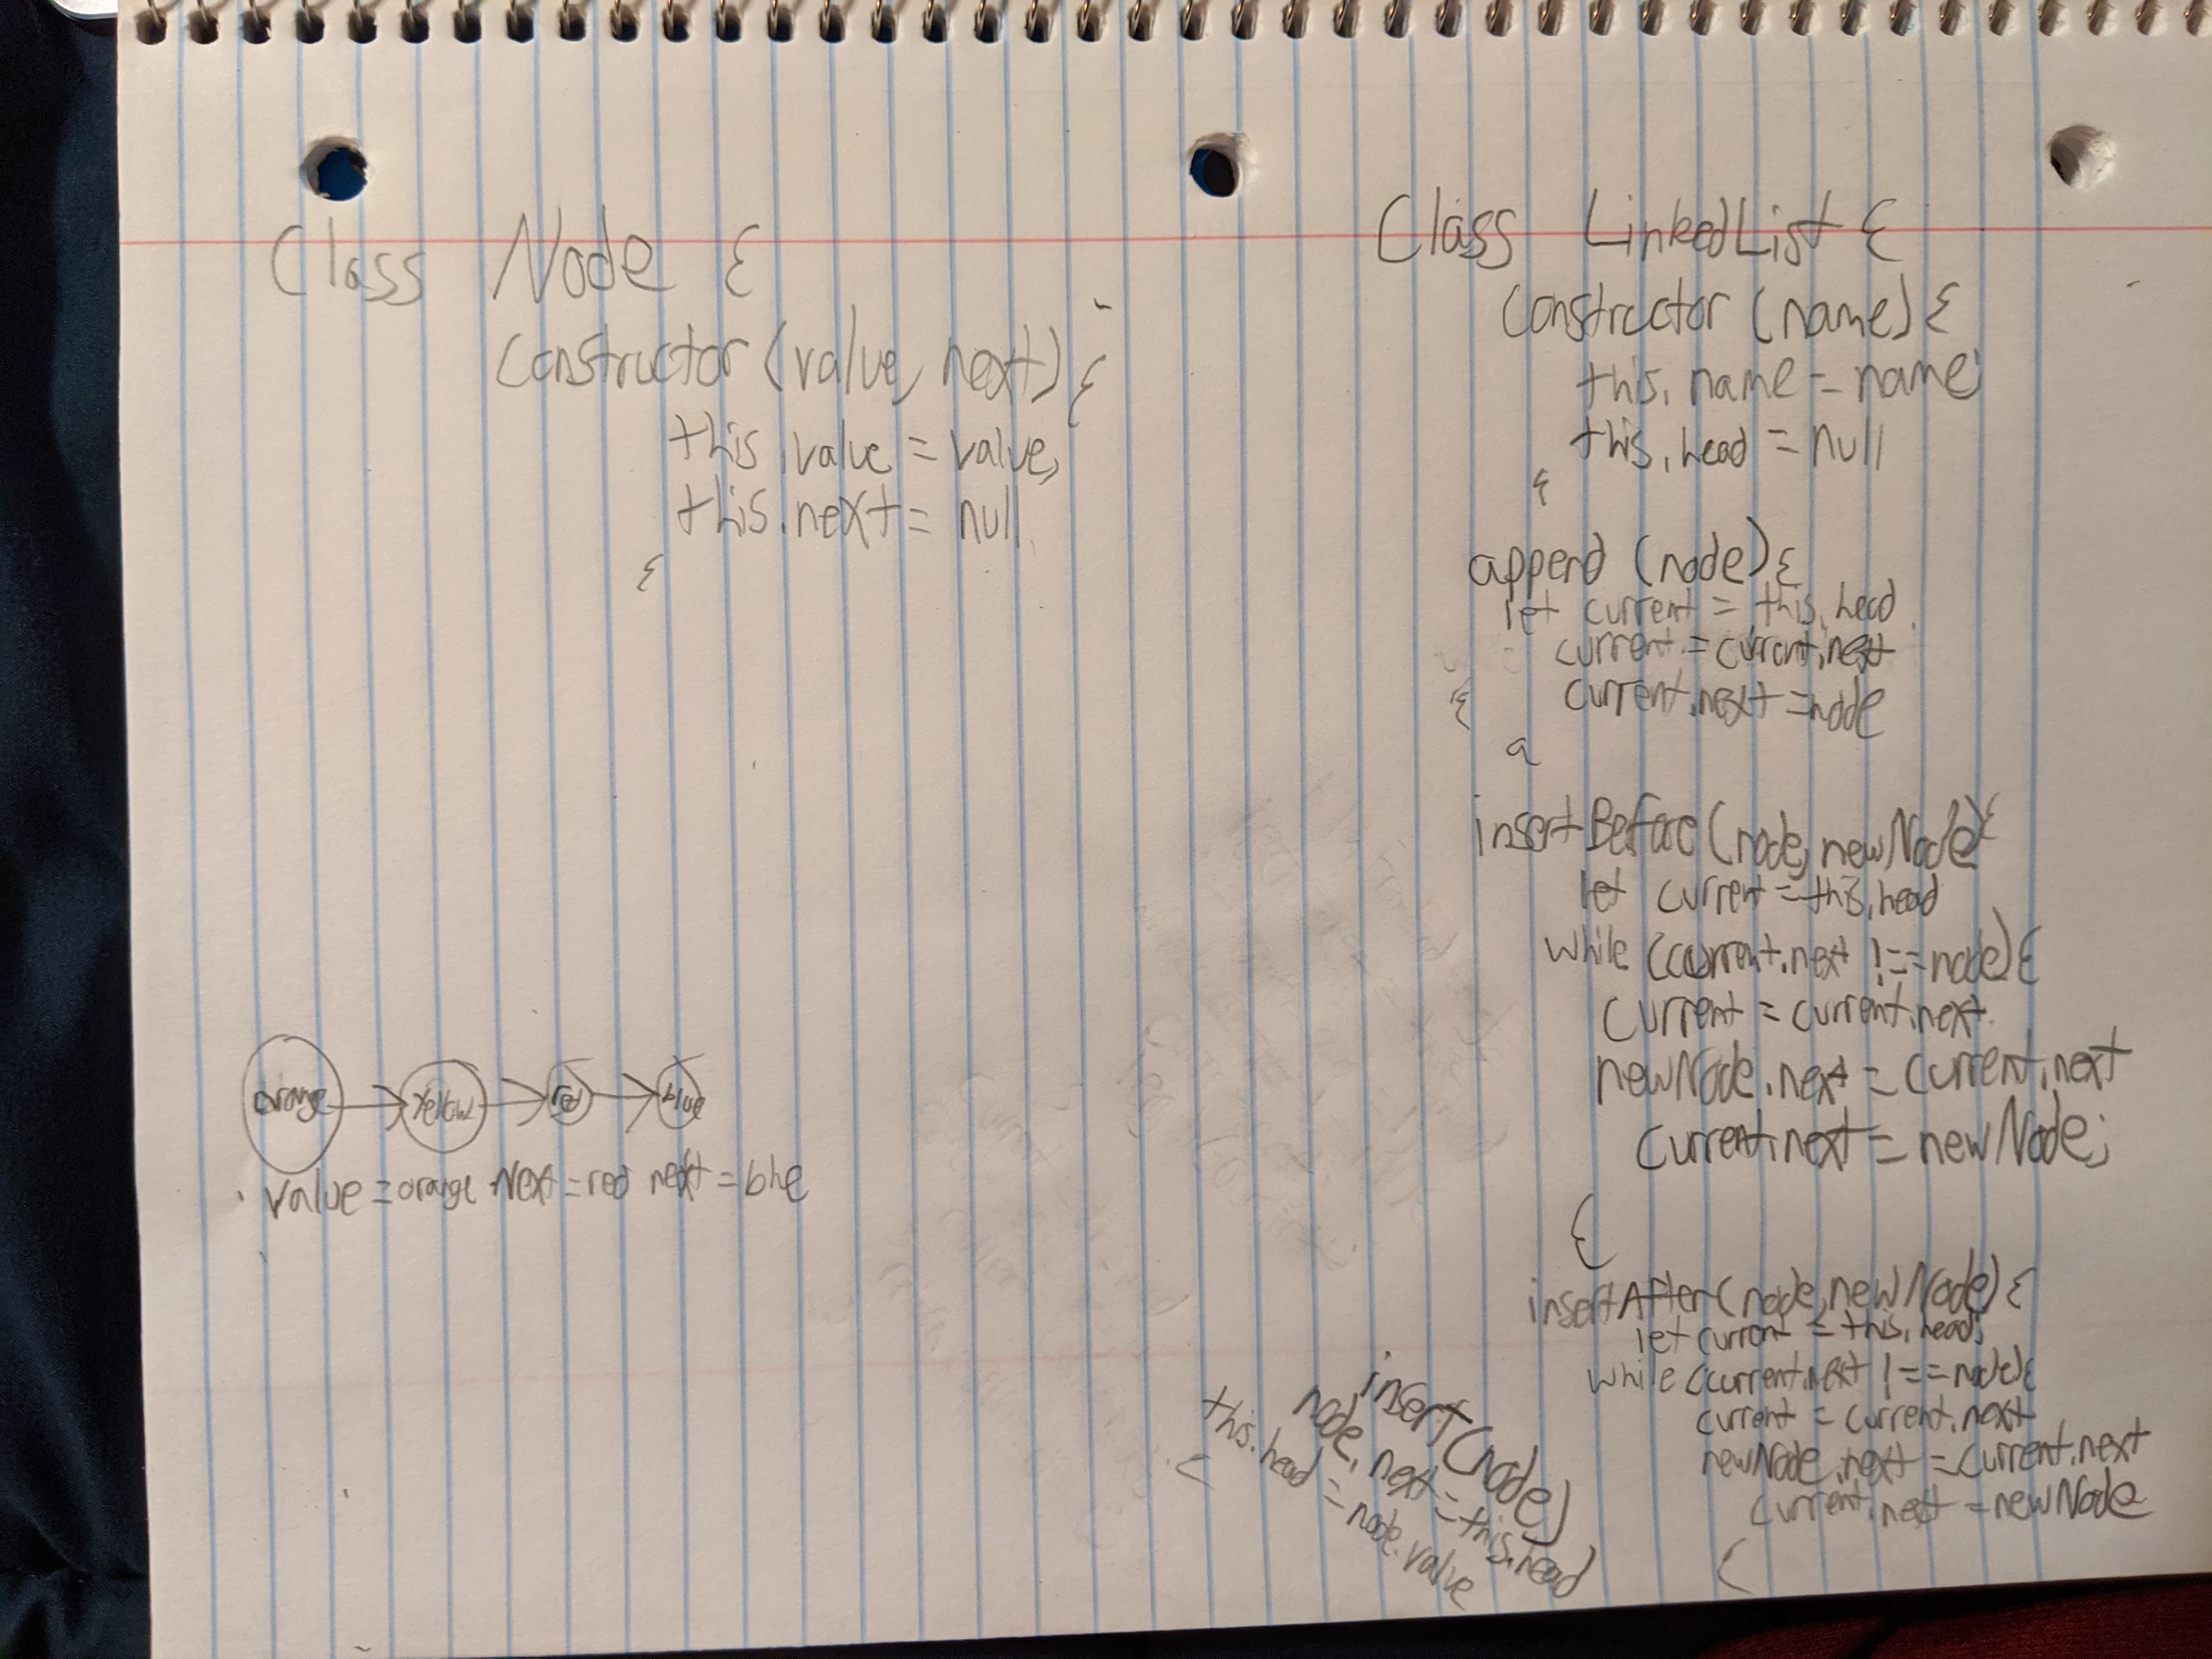 Class Node {
constructor (value, next) {
this.value = value;
this.next = null
}
orange → Yellow → red → blue
Value = orange Next = red next = blue
Class LinkedList {
constructor (name) {
this.name = name;
this.head = null
}
append (node) {
let current = this.head
current = current.next
current.next = node
}
insertBefore (node, newNode) {
let current = this.head
while (current.next !== node) {
current = current.next.
newNode.next = current.next
current.next = newNode;
}
insertAfter (node, newNode) {
let current = this.head;
while (current.next !== node) {
current = current.next
newNode.next = current.next
current.next = newNode
insert (node)
node.next = this.head
this.head = node.value